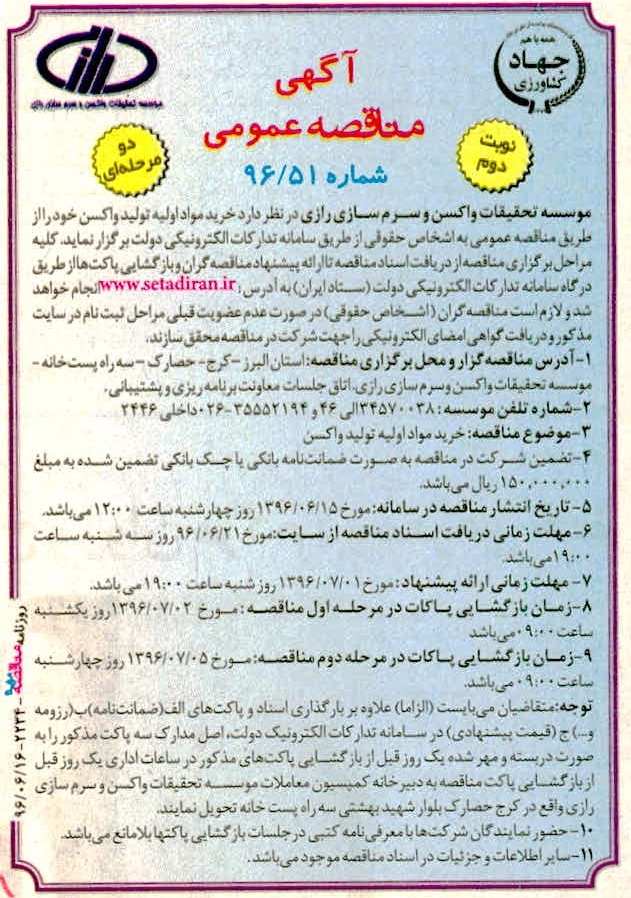 همه با هم
جهاد
کشاورزی
موسسه تحقیقات واکسن و سرم سازی رازی
آگهی
مناقصه عمومی
شماره ۹۶/۵۱
نوبت
دوم
دو
مرحله‌ای
موسسه تحقیقات واکسن و سرم سازی رازی در نظر دارد خرید مواد اولیه تولید واکسن خود را از
طریق مناقصه عمومی به اشخاص حقوقی از طریق سامانه تدارکات الکترونیکی دولت برگزار نماید. کلیه
مراحل برگزاری مناقصه از دریافت اسناد مناقصه تا ارائه پیشنهاد مناقصه گران و بازگشایی پاکت‌ها از طریق
درگاه سامانه تدارکات الکترونیکی دولت (ستاد ایران) به آدرس: www.setadiran.ir انجام خواهد
شد و لازم است مناقصه گران (اشخاص حقوقی) در صورت عدم عضویت قبلی مراحل ثبت نام در سایت
مذکور و دریافت گواهی امضای الکترونیکی را جهت شرکت در مناقصه محقق سازند.
۱-آدرس مناقصه گزار و محل برگزاری مناقصه: استان البرز – کرج- حصارک – سه راه پست خانه -
موسسه تحقیقات واکسن و سرم سازی رازی. اتاق جلسات معاونت برنامه ریزی و پشتیبانی.
۲-شماره تلفن موسسه: ۳۴۵۷۰۰۳۸ الی ۴۶ و ۳۵۵۵۲۱۹۴-۰۲۶ داخلی ۲۴۴۶
۳-موضوع مناقصه: خرید مواد اولیه تولید واکسن
۴-تضمین شرکت در مناقصه به صورت ضمانت‌نامه بانکی یا چک بانکی تضمین شده به مبلغ
۱۵۰,۰۰۰,۰۰۰ ریال می‌باشد.
۵- تاریخ انتشار مناقصه در سامانه: مورخ ۱۳۹۶/۰۶/۱۵ روز چهارشنبه ساعت ۱۲:۰۰ می‌باشد.
۶- مهلت زمانی دریافت اسناد مناقصه از سایت: مورخ ۹۶/۰۶/۲۱ روز سه شنبه ساعت
۱۹:۰۰ می‌باشد.
۷- مهلت زمانی ارائه پیشنهاد: مورخ ۱۳۹۶/۰۷/۰۱ روز شنبه ساعت ۱۹:۰۰ می باشد.
۸-زمان بازگشایی پاکات در مرحله اول مناقصه: مورخ ۱۳۹۶/۰۷/۰۲ روز یکشنبه
ساعت ۰۹:۰۰ می‌باشد
۹-زمان بازگشایی پاکات در مرحله دوم مناقصه: مورخ ۱۳۹۶/۰۷/۰۵ روز چهارشنبه
ساعت ۰۹:۰۰ می‌باشد.
توجه: متقاضیان می‌بایست (الزاما) علاوه بر بارگذاری اسناد و پاکت‌های الف(ضمانت‌نامه)ب(رزومه
و...) ج (قیمت پیشنهادی) در سامانه تدارکات الکترونیک دولت، اصل مدارک سه پاکت مذکور را به
صورت دربسته و مهر شده یک روز قبل از بازگشایی پاکت‌های مذکور در ساعات اداری یک روز قبل
از بازگشایی پاکت مناقصه به دبیرخانه کمیسیون معاملات موسسه تحقیقات واکسن و سرم سازی
رازی واقع در کرج حصارک بلوار شهید بهشتی سه راه پست خانه تحویل نمایند.
۱۰-حضور نمایندگان شرکت‌ها با معرفی‌نامه کتبی در جلسات بازگشایی پاکتها بلامانع می‌باشد.
۱۱-سایر اطلاعات و جزئیات در اسناد مناقصه موجود می‌باشد.
روزنامه مناقصه - ۲۲۳۴ - ۹۶/۰۶/۱۶